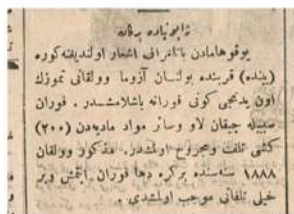 ژاپونیاده برکان
یوقوهامادن باتلغراف اشعار اولندیغنه كوره
(ینده) قربنده بولنان آزوما وولقانی تموزك
اون یدنجی كونی فورانه باشلامشدر . فوران
سببیله چیقان لاو وسائر مواد مادیه‌دن (۲۰۰)
كشی تلف ومجروح اولمشدر. مذكور وولقان
۱۸۸۸ سنه‌سنده بركره دها فوران ایتمش وبر
خیلی تلفاتی موجب اولمشدی .